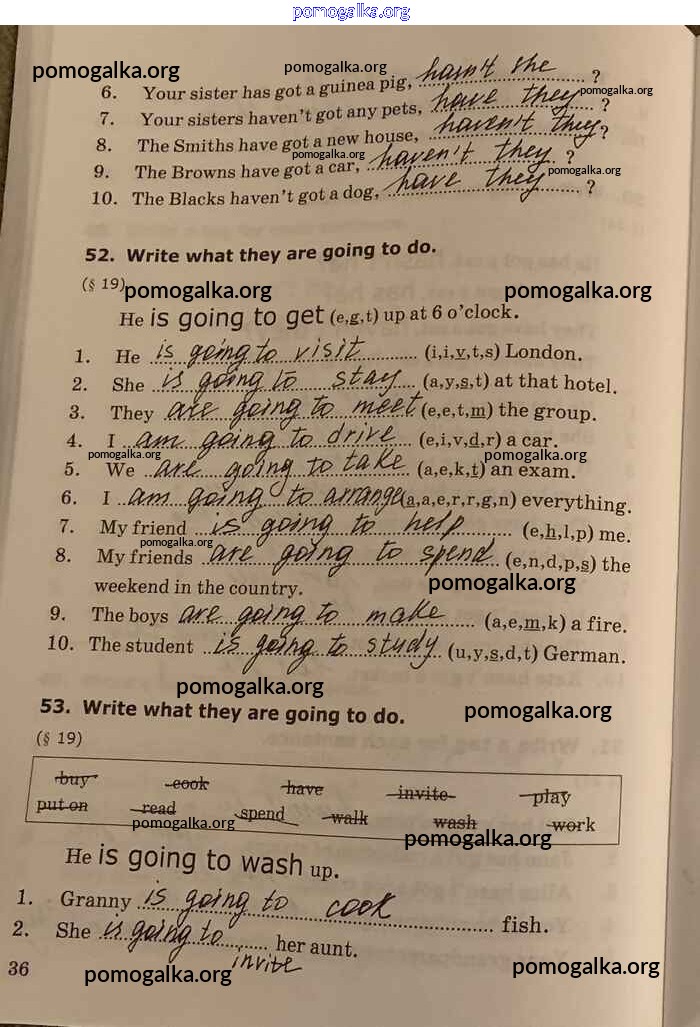 pomogalka.org
pomogalka.org pomogalka.org
6. Your sister has got a guinea pig, hasn't she ?
pomogalka.org
7. Your sisters haven't got any pets, have they ?
8. The Smiths have got a new house, haven't they ?
pomogalka.org
9. The Browns have got a car, haven't they ?
pomogalka.org
10. The Blacks haven't got a dog, have they ?
52. Write what they are going to do.
(§ 19)
pomogalka.org pomogalka.org
He is going to get (e,g,t) up at 6 o'clock.
1. He is going to visit (i,i,v,t,s) London.
2. She is going to stay (a,y,s,t) at that hotel.
3. They are going to meet (e,e,t,m) the group.
4. I am going to drive (e,i,v,d,r) a car.
pomogalka.org pomogalka.org
5. We are going to take (a,e,k,t) an exam.
6. I am going to arrange (a,a,e,r,r,g,n) everything.
7. My friend is going to help (e,h,l,p) me.
pomogalka.org
8. My friends are going to spend (e,n,d,p,s) the
weekend in the country.
pomogalka.org
9. The boys are going to make (a,e,m,k) a fire.
10. The student is going to study (u,y,s,d,t) German.
pomogalka.org pomogalka.org
53. Write what they are going to do.
(§ 19)
buy cook have invite play
put on read spend walk wash work
pomogalka.org pomogalka.org
He is going to wash up.
1. Granny is going to cook fish.
2. She is going to her aunt.
invite
36
pomogalka.org pomogalka.org